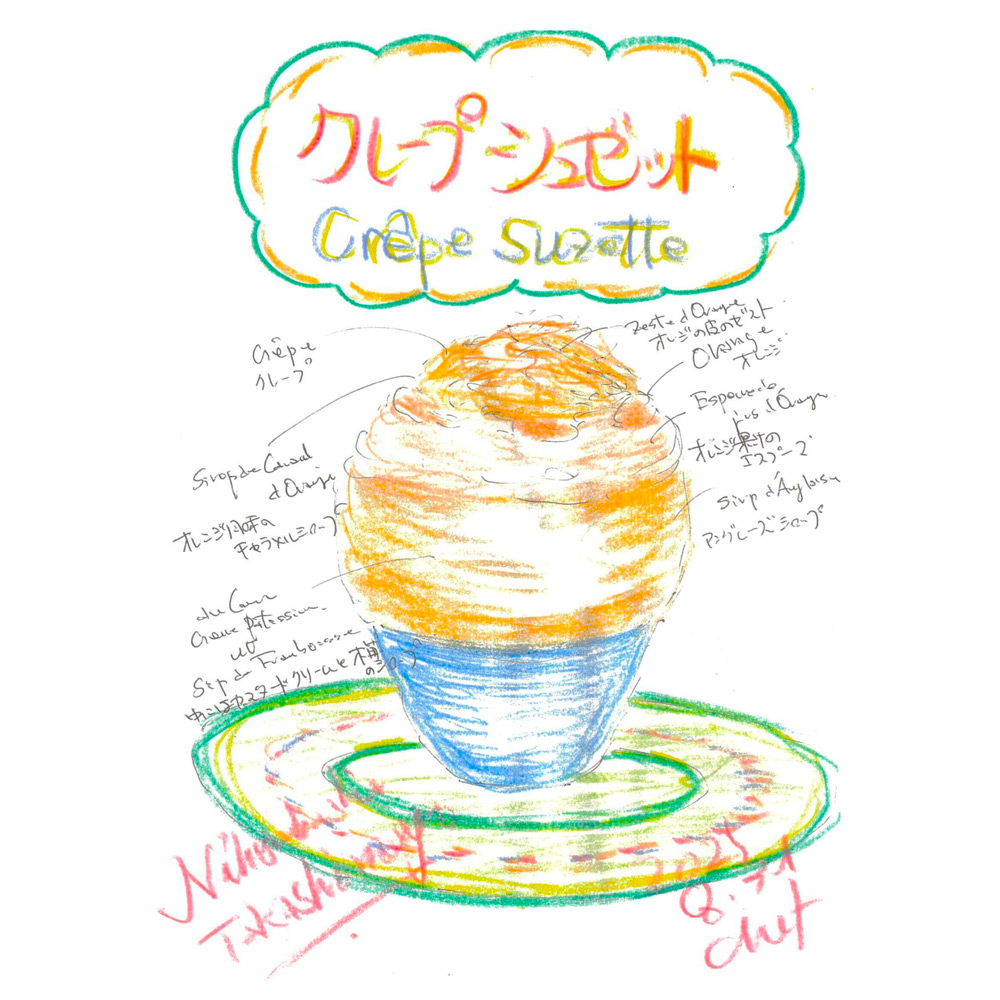 クレープシュゼット
Crêpe Suzette
Crêpe
クレープ
Zeste d'Orange
オレンジの皮のゼスト
Orange
オレンジ
Espouma de
jus d'Orange
オレンジ果汁の
エスプーマ
Sirop de Caramel
d'Orange
オレンジ風味の
キャラメルシロップ
Sirop d'Anglaise
アングレーズシロップ
Creme Patissiere
et
Sirop de Framboise
中にはカスタードクリームと木苺
のシロップ
Nihonbashi
Takashimaya
2025
Chef